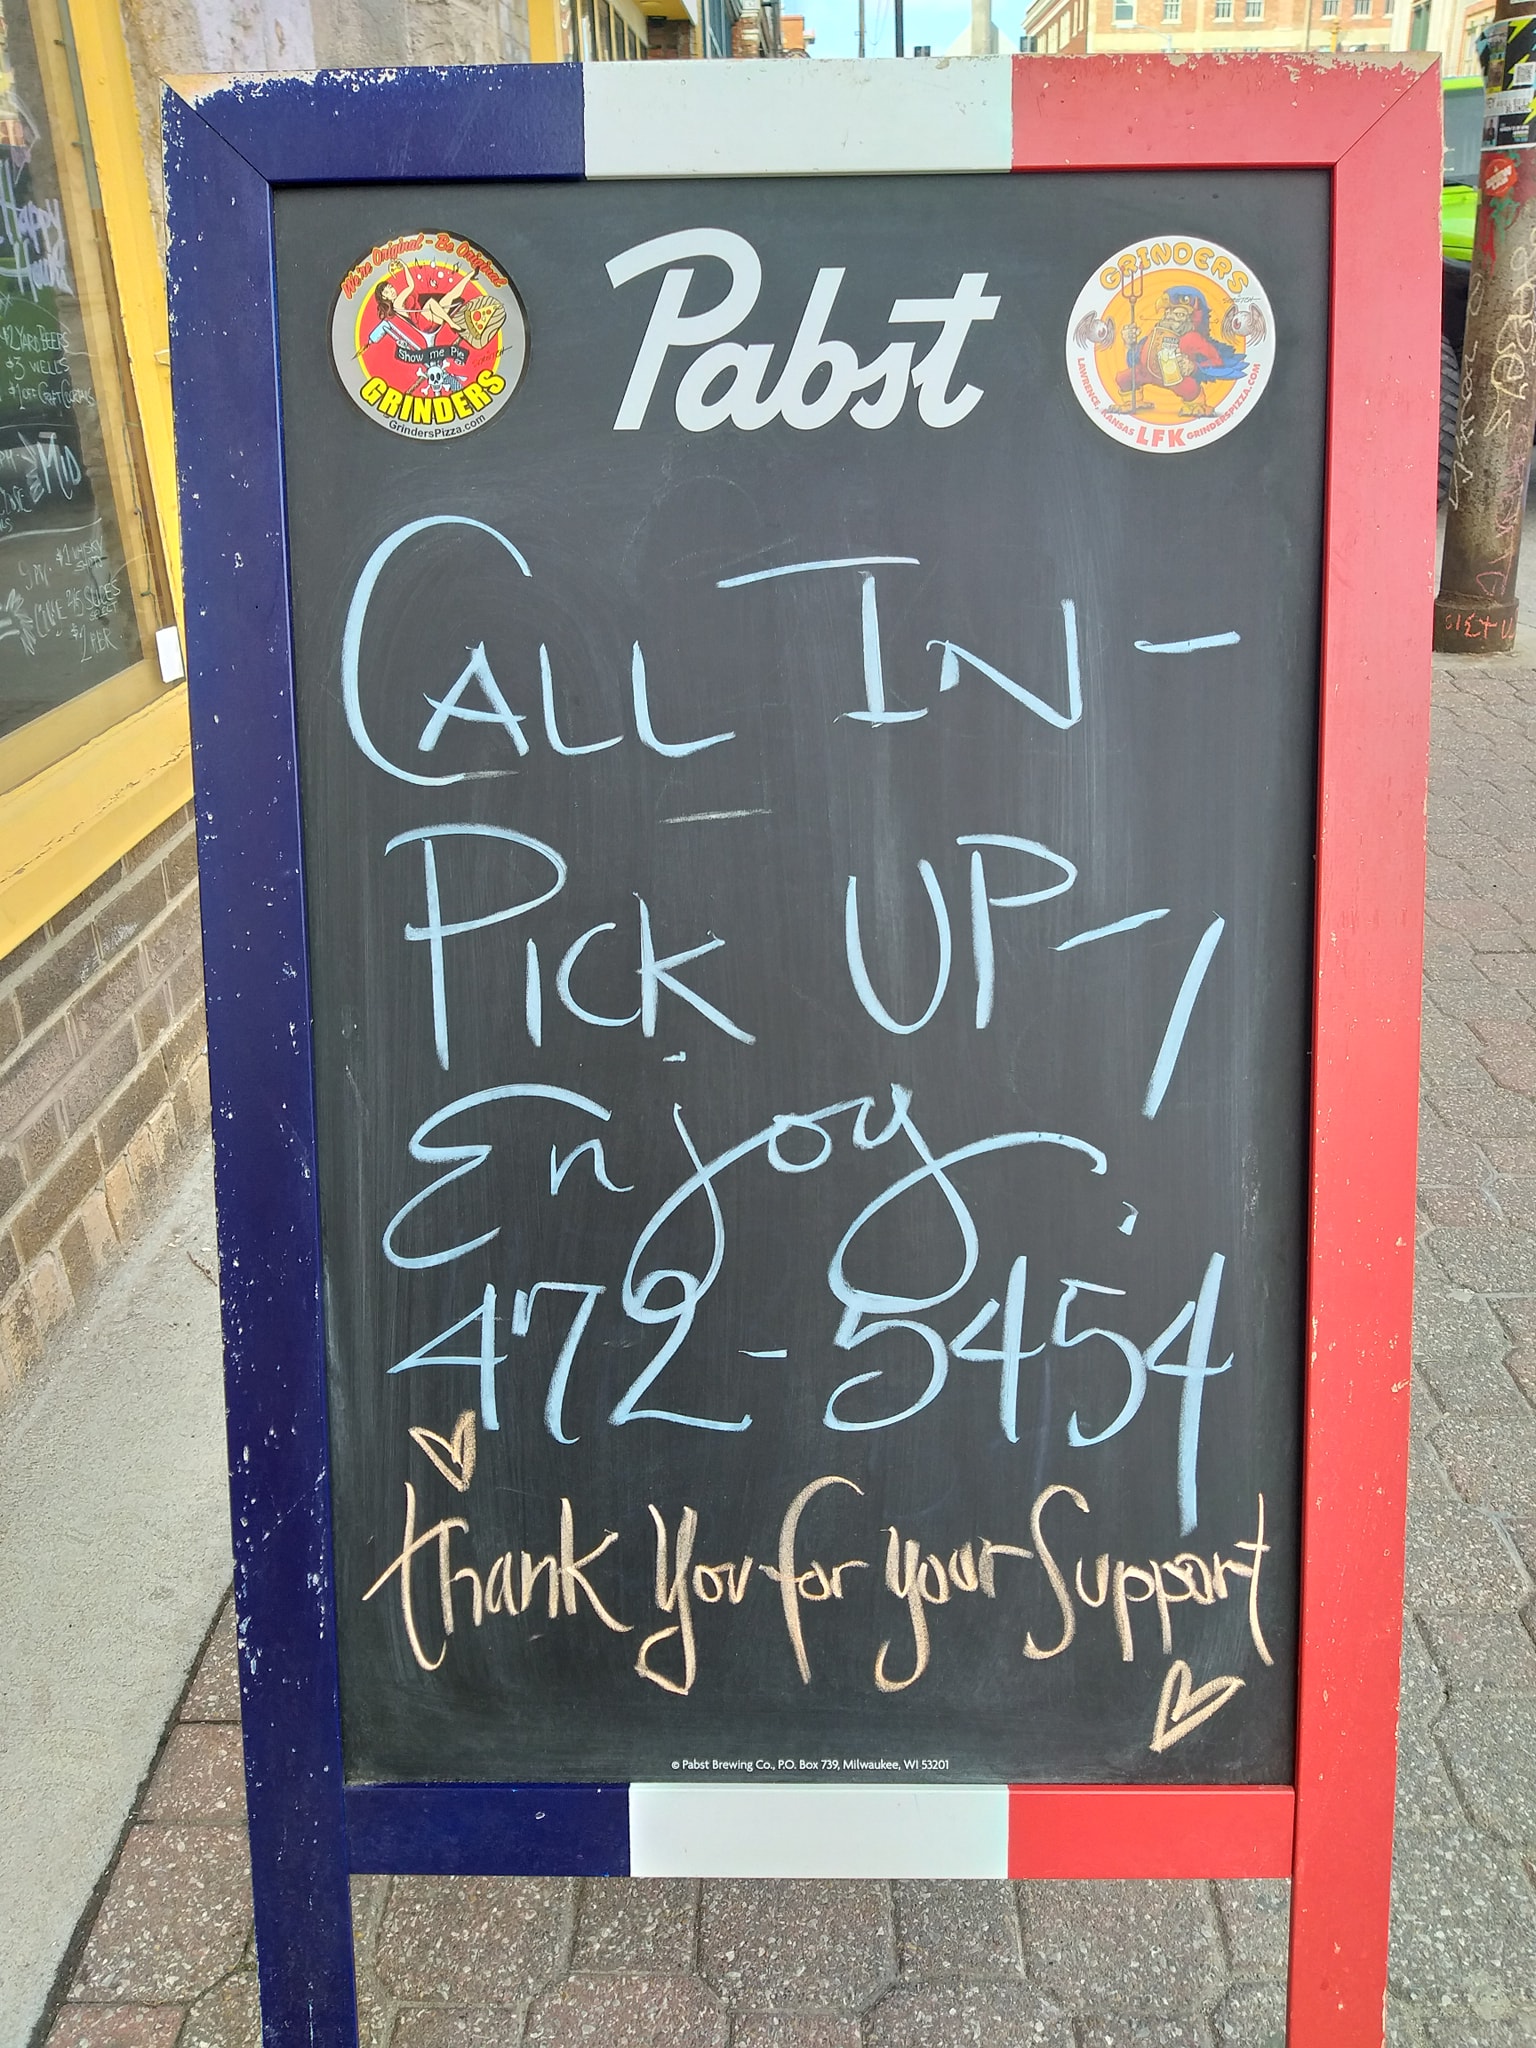 We're Original - Be Original
Show me Pie
GRINDERS
GrindersPizza.com
Pabst
GRINDERS
LAWRENCE, KANSAS LFK GRINDERSPIZZA.COM
CALL IN-
PICK UP-/
Enjoy
472-5454
Thank You for your Support
© Pabst Brewing Co., P.O. Box 739, Milwaukee, WI 53201
Happy
$2 YARD BEERS
$3 WELLS
$1 OFF CRAFT COCKTAILS
MID
$1 WHISKY